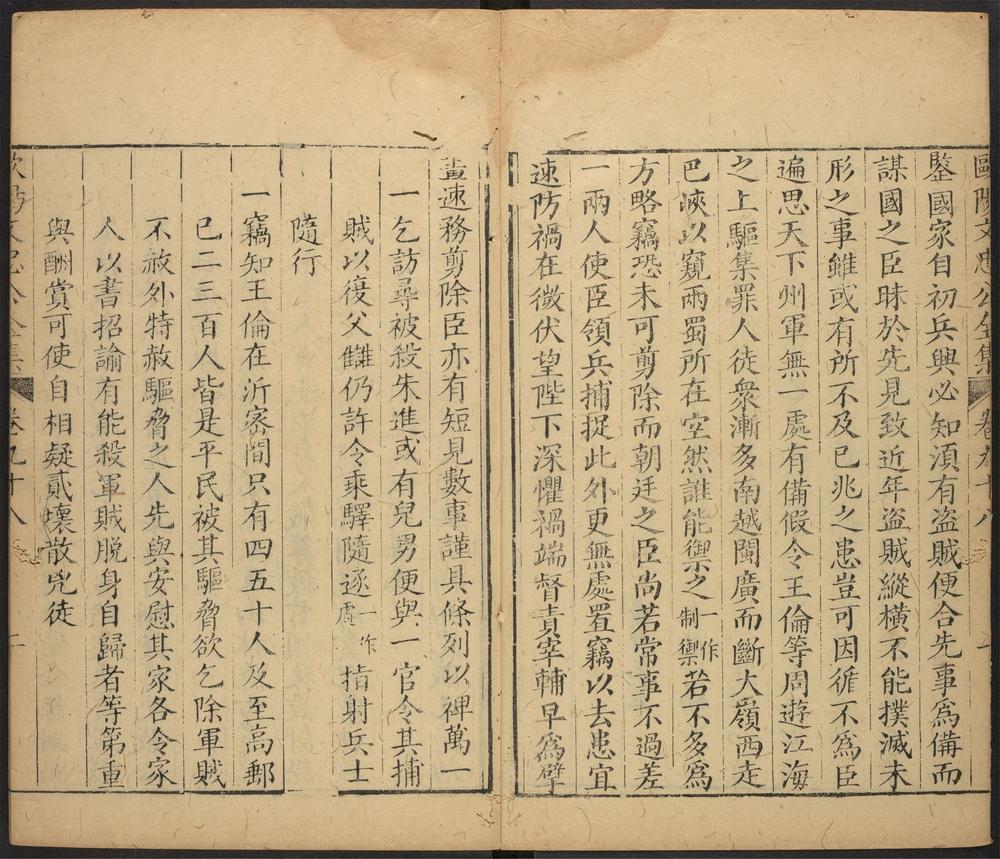 歐陽文忠公全集 卷九十八 一
鑒國家自初兵興必知須有盗賊便合先事爲備而
謀國之臣昧於先見致近年盗賊縱橫不能撲滅未
形之事雖或有所不及已兆之患豈可因循不爲臣
遍思天下州軍無一處有備假令王倫等周遊江海
之上驅集罪人徒衆漸多南越閩廣而斷大嶺西走
巴峽以窺兩蜀所在空然誰能禦之一作制禦若不多爲
方略竊恐未可剪除而朝廷之臣尚若常事不過差
一兩人使臣領兵捕捉此外更無處置竊以去患宜
速防禍在微伏望陛下深懼禍端督責宰輔早爲擘
畫速務剪除臣亦有短見數事謹具條列以裨萬一
一乞訪尋被殺朱進或有兒男便與一官令其捕
賊以復父讎仍許令乘驛隨逐一作處指射兵士
隨行
一竊知王倫在沂密間只有四五十人及至高郵
已二三百人皆是平民被其驅脅欲乞除軍賊
不赦外特赦驅脅之人先與安慰其家各令家
人以書招諭有能殺軍賊脫身自歸者等第重
與酬賞可使自相疑貳壞散兇徒
歐陽文忠公全集 卷九十八 一